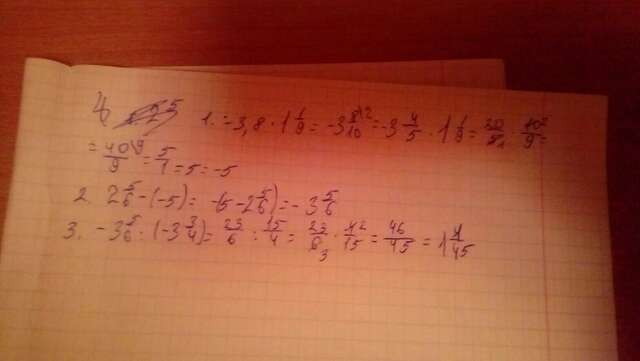 4.
1. -3,8 · 1 1/9 = -3 8/10 = -3 4/5 · 1 1/9 = · 10/9 =
= 40/9 = 5/1 = 5 = -5
2. 2 5/6 - (-5) = -(5 - 2 5/6) = -3 5/6
3. -3 5/6 : (-3 3/4) = 23/6 : 15/4 = 23/6 · 4/15 = 46/45 = 1 1/45